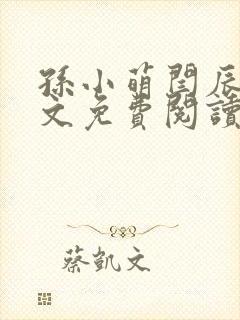 孫小萌閆辰
文免費閱讀
蔡凱文